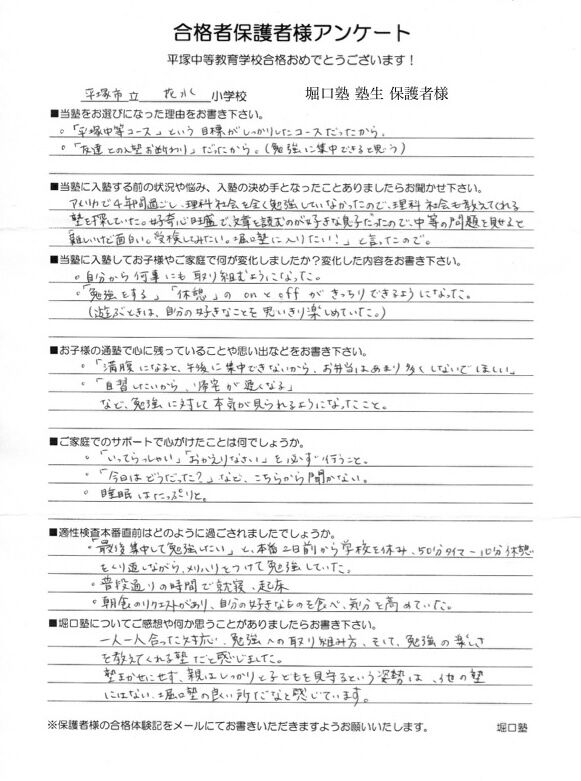 合格者保護者様アンケート
平塚中等教育学校合格おめでとうございます！
平塚市立 花水 小学校 堀口塾 塾生 保護者様
■当塾をお選びになった理由をお書き下さい。
。「平塚中等コース」という目標がしっかりしたコースだったから。
。「友達との入塾お断わり」だったから。（勉強に集中できると思う）
■当塾に入塾する前の状況や悩み、入塾の決め手となったことありましたらお聞かせ下さい。
アメリカで4年間過ごし、理科社会を全く勉強していなかったので、理科社会も教えてくれる
塾を探していた。好奇心旺盛で、文章を読むのが好きな息子だったので、中等の問題を見せると
「難しいけど面白い。受検してみたい。堀口塾に入りたい！」と言ったので。
■当塾に入塾してお子様やご家庭で何が変化しましたか？変化した内容をお書き下さい。
。自分から何事にも取り組むようになった。
。「勉強をする」「休憩」のonとoffがきっちりできるようになった。
（遊ぶときは、自分の好きなことを思いきり楽しめていた。）
■お子様の通塾で心に残っていることや思い出などをお書き下さい。
。「満腹になると、午後に集中できないから、お弁当はあまり多くしないでほしい。」
。「自習したいから、帰宅が遅くなる」
など、勉強に対して本気が見られるようになったこと。
■ご家庭でのサポートで心がけたことは何でしょうか。
。「いってらっしゃい」「おかえりなさい」を必ず行うこと。
。「今日はどうだった？」など、こちらから聞かない。
。睡眠はたっぷりと。
■適性検査本番直前はどのように過ごされましたでしょうか。
。「最後集中して勉強したい」と、本番2日前から学校を休み、50分タイマー10分休憩
をくり返しながら、メリハリをつけて勉強していた。
。普段通りの時間で就寝、起床
。朝食のリクエストがあり、自分の好きなものを食べ、気分を高めていた。
■堀口塾についてご感想や何か思うことがありましたらお書き下さい。
一人一人合った対応い、勉強への取り組み方、そして、勉強の楽しさ
を教えてくれる塾だと感じました。
塾まかせにせず、親はしっかりと子どもを見守るという姿勢は、他の塾
にはない、堀口塾の良い所だなと感じています。
※保護者様の合格体験記をメールにてお書きいただきますようお願いいたします。 堀口塾